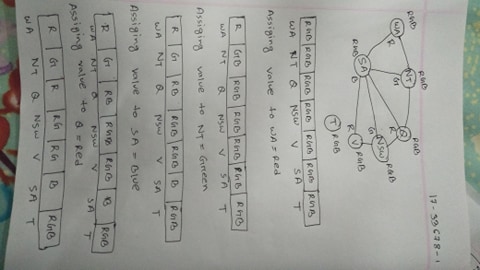 17-33678-1
RGB RGB RGB
WA NT Q
R G R RGB
NSW
G
RGB SA B R V RGB
T RGB
RGB RGB RGB RGB RGB RGB RGB
WA NT Q NSW V SA T
Assiging value to WA = Red
R GB RGB RGB RGB RGB RGB
WA NT Q NSW V SA T
Assiging value to NT = Green
R G RB RGB RGB B RGB
WA NT Q NSW V SA T
Assiging value to SA = Blue
R G RB RGB RGB B RGB
WA NT Q NSW V SA T
Assiging value to Q = Red
R G R RG RG B RGB
WA NT Q NSW V SA T